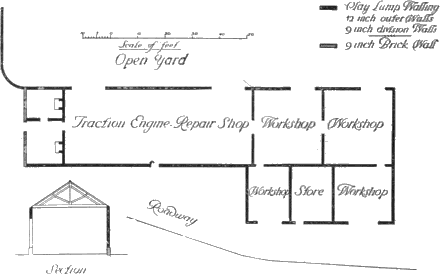 Clay Lump Walling
12 inch outer Walls
9 inch division Walls
9 inch Brick Wall
Scale of feet
Open Yard
Traction Engine Repair Shop
Workshop
Workshop
Workshop
Store
Workshop
Roadway
Section